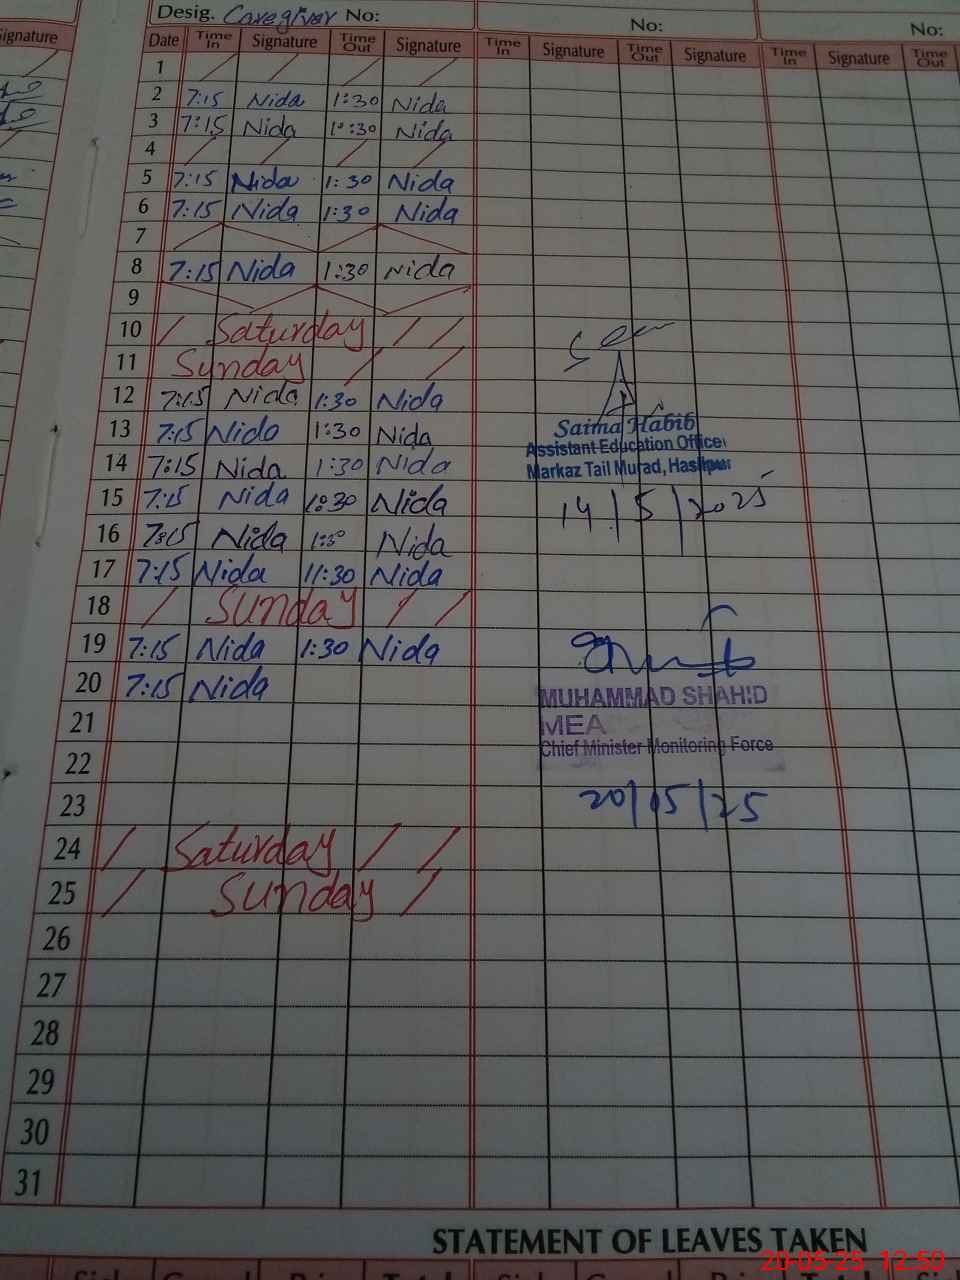 Desig. Caregiver No:
No:
No:
Signature
Date Time In Signature Time Out Signature Time In Signature Time Out Signature Time In Signature Time Out
1
2 7:15 Nida 1:30 Nida
3 7:15 Nida 1:30 Nida
4
5 7:15 Nida 1:30 Nida
6 7:15 Nida 1:30 Nida
7
8 7:15 Nida 1:30 Nida
9
10 Saturday
11 Sunday
12 7:15 Nida 1:30 Nida
13 7:15 Nida 1:30 Nida
14 7:15 Nida 1:30 Nida
15 7:15 Nida 1:30 Nida
16 7:15 Nida Nida
17 7:15 Nida 11:30 Nida
18 Sunday
19 7:15 Nida 1:30 Nida
20 7:15 Nida
21
22
23
24 Saturday
25 Sunday
26
27
28
29
30
31
Seen
Saima Habib
Assistant Education Officer
Markaz Tail Murad, Hasilpur
14/5/2025
MUHAMMAD SHAHID
MEA
Chief Minister Monitoring Force
20/05/25
STATEMENT OF LEAVES TAKEN
20-05-25 12:50